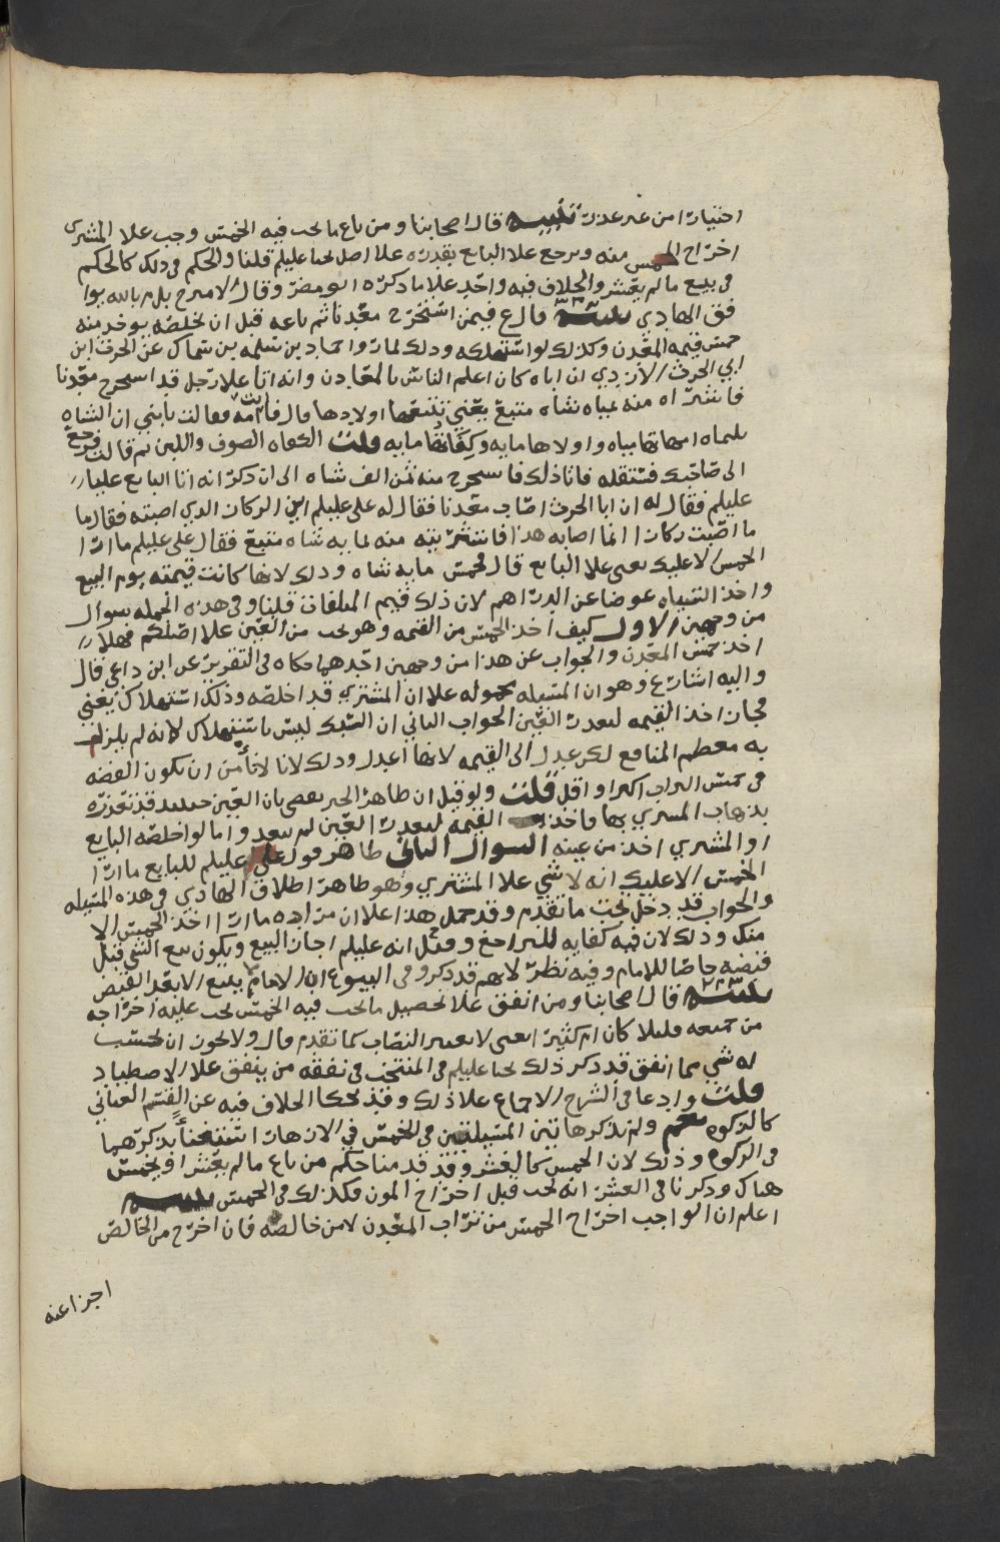 اختيارا من غير عذر تنبيه قال اصحابنا ومن باع ما يجب فيه الخمس وجب علا المشتري
اخراج الخمس منه ويرجع علا البايع بقدره علا اصل يحيا عليلم قلنا والحكم في ذلك كالحكم
في بيع ما لم يعشر والخلاف فيه واحد علا ما ذكره ابو مضر وقال الامير ح بل م بالله يوا
فق الهادي تنبيه قال ع فيمن استخرج معدنا ثم باعه قبل ان يخلصه يوخذ منه
خمس قيمة المعدن وكذلك لو استهلكه وذلك لما روا حماد بن سلمه بن سماك عن الحرث ابن
ابي الحرث الازدي ان اباه كان اعلم الناس بالمعادن وانه اتا علا رجل قد استخرج معدنا
فاشتراه منه بمياه شاه متبع يعني تتبعها اولادها قال فاتيت امه فقالت يا بني ان الشاه
بثلثماه امهاتها مياه واولادها مايه وكفاتها مايه قلت الكفاه الصوف واللبن ثم قالت فرجع
الى صاحبك فستقله فاتا ذلك فاستخرج منه ثمن الف شاه الى ان ذكر انه اتا البايع عليا
عليلم فقال له ان ابا الحرث اصاب معدنا فقال له علي عليلم اين الركاز الذي اصبته فقال ما
ما اصبت ركازا انما اصابه هذا فاشتريته منه بمايه شاه متبع فقال علي عليلم ما ارا
الخمس الا عليك يعني علا البايع قال فخمس مايه شاه وذلك لانها كانت قيمته يوم البيع
واخذ الشياه عوضا عن الدراهم لان ذلك قيم المتلفات قلنا وفي هذه الجمله سوال
من وجهين الاول كيف اخذ الخمس من القيمه وهو يجب من العين علا اصلكم فهلا
اخذ خمس المعدن والجواب عن هذا من وجهين احدهما حكاه في التقرير عن ابن داعي قال
واليه اشار ع وهو ان المسيله محموله علا ان المشتري قد اخلصه وذلك استهلاك يعني
فجاز اخذ القيمه لتعذر العين الجواب الثاني ان السبك ليس باستهلاك لانه لم يلزم
به معظم المنافع لكن عدل الى القيمه لانها اعدل وذلك لانا لا نامن ان يكون الفضه
في خمس التراب اكثر او اقل قلت ولو قيل ان ظاهر الخبر يقضي بان العين حينيذ قد تعذره
بذهاب المشتري بها فاخذت القيمه لتعذر العين لم يبعد واما لو اخلصه البايع
او المشتري اخذ من عينه السوال الثاني ظاهر قول علي عليلم للبايع ما ارا
الخمس الا عليك انه لا شي علا المشتري وهو ظاهر اطلاق الهادي في هذه المسيله
والجواب قد دخل تحت ما تقدم وقد حمل هذا علا ان مراده ما ارا اخذ الخمس الا
منك وذلك لان فيه كفايه للتراجع وقيل انه عليلم اجاز البيع ويكون بيع الشي قبل
قبضه خاصا للامام وفيه نظر لانهم قد ذكرو في البيوع ان الامام لا يبيع الا بعد القبض
تنبيه قال اصحابنا ومن انفق علا تحصيل ما يجب فيه الخمس يجب عليه اخراجه
من جميعه قليلا كان ام كثيرا اعني لا يعتبر النصاب كما تقدم قال ولا يجوز ان يحتسب
له شي مما انفق قد ذكر ذلك يحيا عليلم في المنتخب في نفقه من ينفق علا الاصطياد
قلت وادعا في الشرح الاجماع علا ذلك وقد حكا الخلاف فيه عن القسم العياني
كالزكوه نعم ولم يذكر هاتين المسيلتين في الخمس في الازهار استغناء بذكرهما
في الزكوه وذلك لان الخمس كالعشر وقد قدمنا حكم من باع ما لم يعشر او يخمس
هناك وذكرنا في العشر انه يجب قبل اخراج المون فكذلك في الخمس تنبيه
اعلم ان الواجب اخراج الخمس من تراب المعدن لا من خالصه فان اخرج من الخالص
اجزا عنه